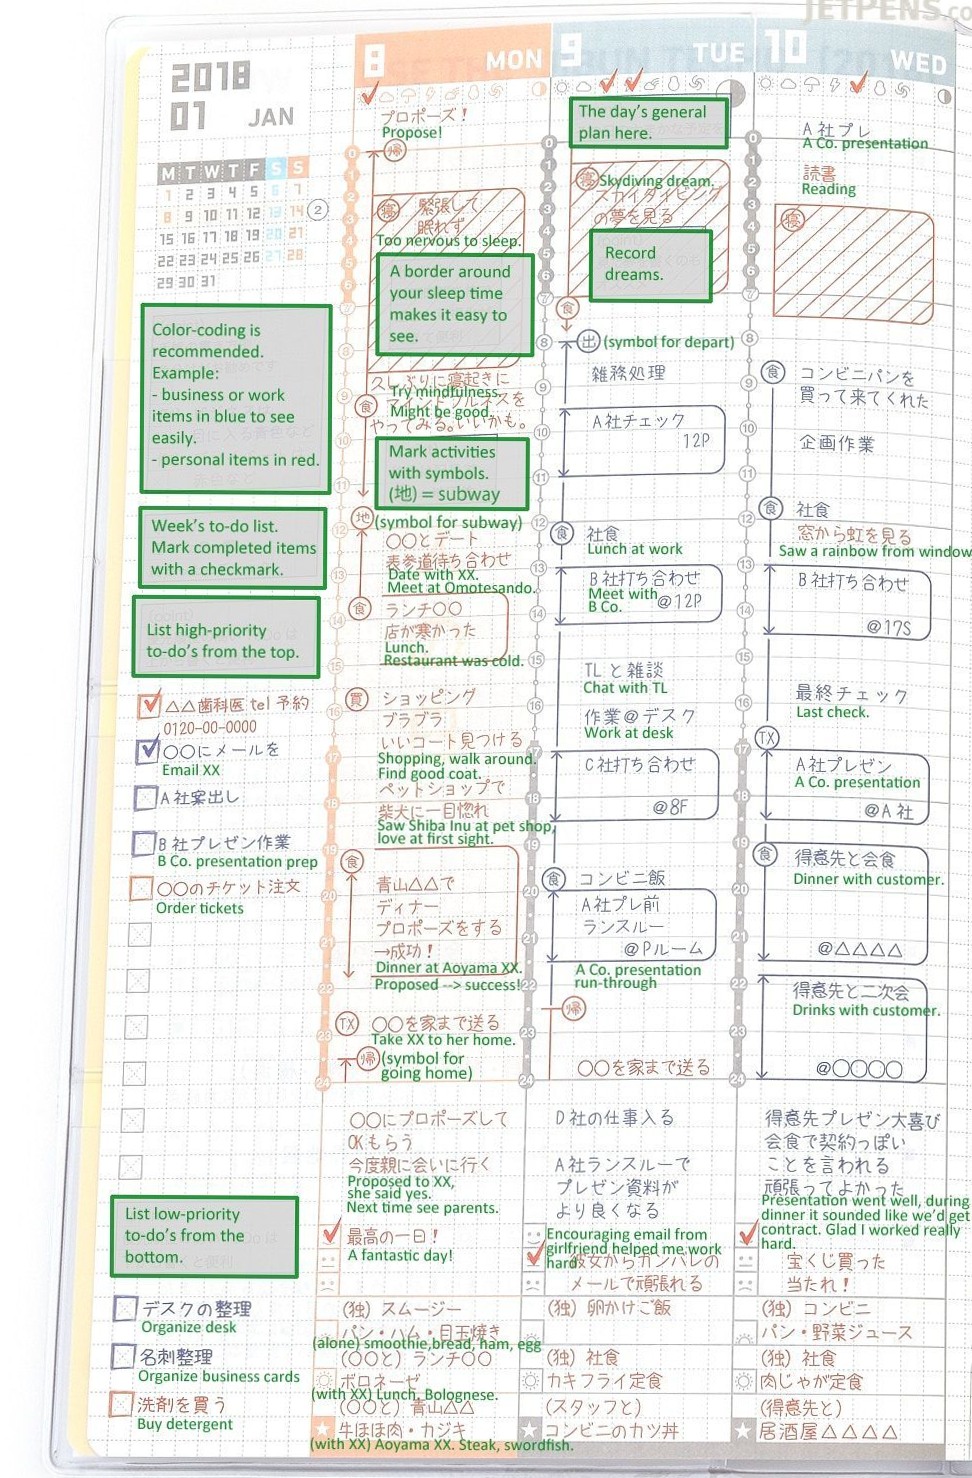 JETPENS.co
2018
01 JAN
M T W T F S S
1 2 3 4 5 6 7
8 9 10 11 12 13 14 ②
15 16 17 18 19 20 21
22 23 24 25 26 27 28
29 30 31
Color-coding is
recommended.
Example:
- business or work
items in blue to see
easily.
- personal items in red.
Week's to-do list.
Mark completed items
with a checkmark.
List high-priority
to-do's from the top.
△△歯科医 tel 予約
0120-00-0000
○○にメールを
Email XX
A社案出し
B社プレゼン作業
B Co. presentation prep
○○のチケット注文
Order tickets
List low-priority
to-do's from the
bottom.
デスクの整理
Organize desk
名刺整理
Organize business cards
洗剤を買う
Buy detergent
8 MON
プロポーズ!
Propose!
帰
寝 緊張して
眠れず
Too nervous to sleep.
A border around
your sleep time
makes it easy to
see.
久しぶりに寝起きに
Try mindfulness.
食 マインドフルネスを
Might be good.
やってみる。いいかも。
Mark activities
with symbols.
(地) = subway
地 (symbol for subway)
○○とデート
表参道待ち合わせ
Date with XX.
Meet at Omotesando.
食 ランチ○○
店が寒かった
Lunch.
Restaurant was cold.
買 ショッピング
ブラブラ
いいコート見つける
Shopping, walk around.
Find good coat.
ペットショップで
柴犬に一目惚れ
Saw Shiba Inu at pet shop,
love at first sight.
食
青山△△で
ディナー
プロポーズをする
→成功!
Dinner at Aoyama XX.
Proposed --> success!
TX ○○を家まで送る
Take XX to her home.
帰 (symbol for
going home)
○○にプロポーズして
OKもらう
今度親に会いに行く
Proposed to XX,
she said yes.
Next time see parents.
最高の一日!
A fantastic day!
(独) スムージー
パン・ハム・目玉焼き
(alone) smoothie,bread, ham, egg
(○○と) ランチ○○
ボロネーゼ
(with XX) Lunch, Bolognese.
(○○と) 青山△△
牛ほほ肉・カジキ
(with XX) Aoyama XX. Steak, swordfish.
9 TUE
The day's general
plan here.
寝 Skydiving dream.
スカイダイビング
の夢を見る
Record
dreams.
食
出 (symbol for depart)
雑務処理
A社チェック
12P
食 社食
Lunch at work
B社打ち合わせ
Meet with
B Co. @12P
TLと雑談
Chat with TL
作業@デスク
Work at desk
C社打ち合わせ
@8F
食 コンビニ飯
A社プレ前
ランスルー
@Pルーム
A Co. presentation
run-through
帰
○○を家まで送る
D社の仕事入る
A社ランスルーで
プレゼン資料が
より良くなる
Encouraging email from
girlfriend helped me work
hard
彼女からガンバレの
メールで頑張れる
(独) 卵かけご飯
(独) 社食
カキフライ定食
(スタッフと)
コンビニのカツ丼
10 WED
A社プレ
A Co. presentation
読書
Reading
寝
食 コンビニパンを
買って来てくれた
企画作業
食 社食
窓から虹を見る
Saw a rainbow from window
B社打ち合わせ
@17S
最終チェック
Last check.
TX
A社プレゼン
A Co. presentation
@A社
食 得意先と会食
Dinner with customer.
@△△△△
得意先と二次会
Drinks with customer.
@○○○○
得意先プレゼン大喜び
会食で契約っぽい
ことを言われる
頑張ってよかった
Presentation went well, during
dinner it sounded like we'd get
contract. Glad I worked really
hard.
宝くじ買った
当たれ!
(独) コンビニ
パン・野菜ジュース
(独) 社食
肉じゃが定食
(得意先と)
居酒屋△△△△